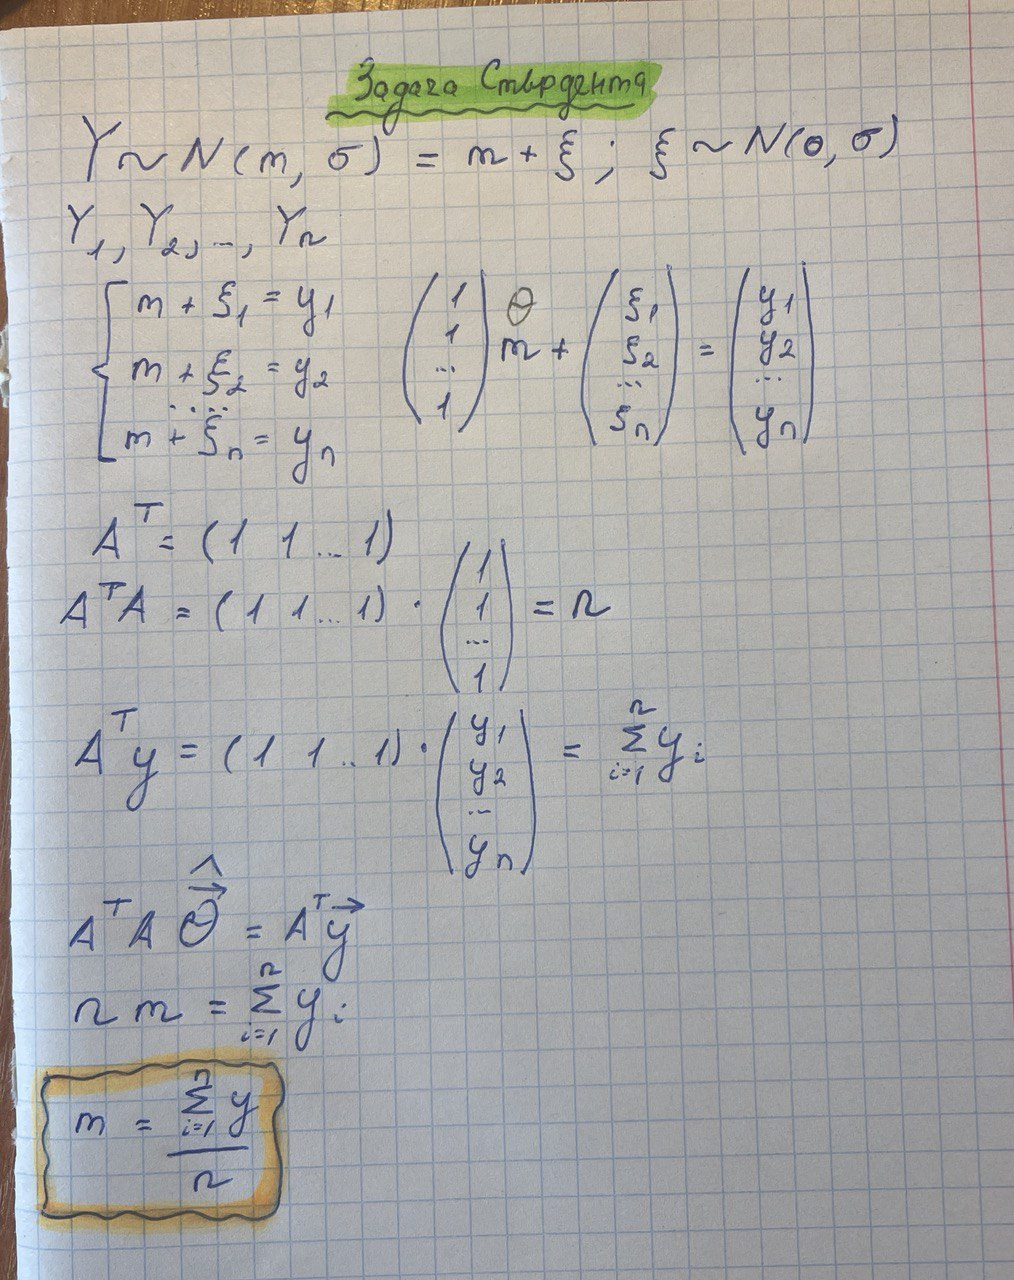 Задача Стьюдента
Y ~ N(m, σ) = m + ξ ; ξ ~ N(0, σ)
Y₁, Y₂, ..., Yₙ
{ m + ξ₁ = y₁
m + ξ₂ = y₂
.....
m + ξₙ = yₙ
(1 1 ... 1) θ m + (ξ₁ ξ₂ ... ξₙ) = (y₁ y₂ ... yₙ)
Aᵀ = (1 1 ... 1)
AᵀA = (1 1 ... 1) · (1 1 ... 1) = n
Aᵀy = (1 1 .. 1) · (y₁ y₂ ... yₙ) = Σⁿᵢ₌₁ yᵢ
AᵀA θ̂⃗ = Aᵀy⃗
n m = Σⁿᵢ₌₁ yᵢ
m = Σⁿᵢ₌₁ y / n